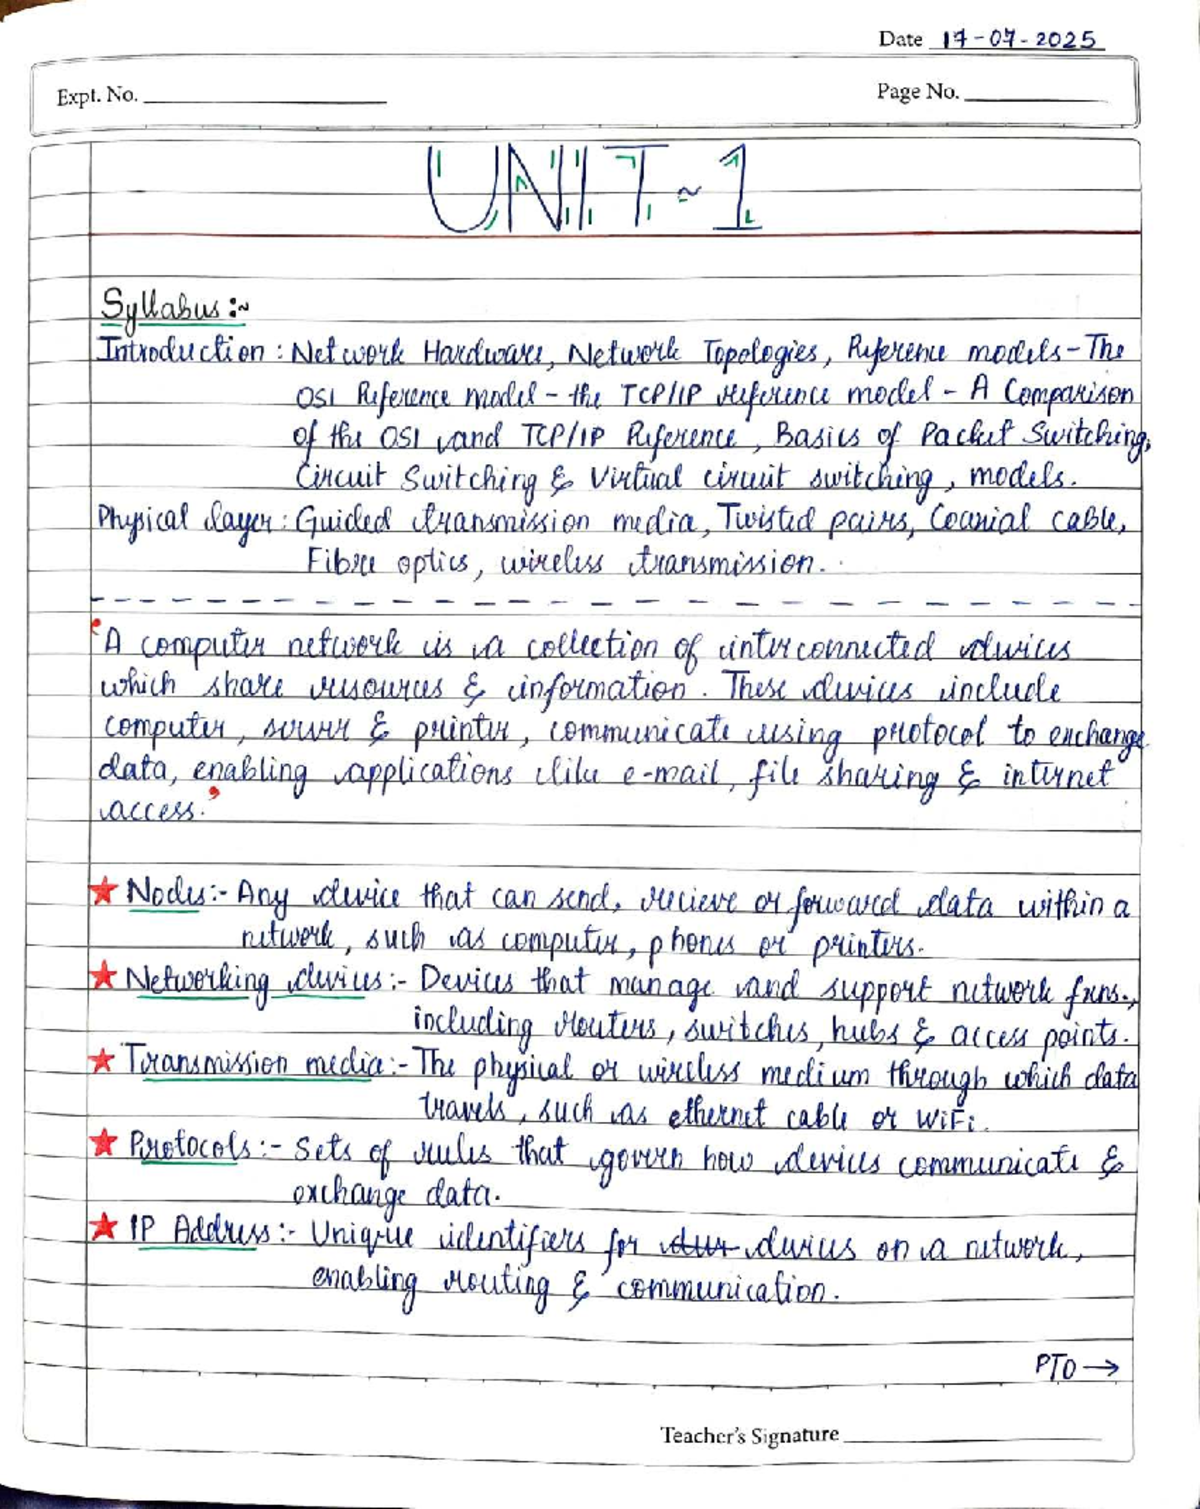 Date 17-07-2025
Expt. No.
Page No.
UNIT~1
Syllabus:~
Introduction: Network Hardware, Network Topologies, Reference models-The
OSI Reference model - the TCP/IP reference model - A Comparison
of the OSI and TCP/IP Reference, Basics of Packet Switching,
Circuit Switching & Virtual circuit switching, models.
Physical layer: Guided transmission media, Twisted pairs, Coaxial cable,
Fibre optics, wireless transmission.
"A computer network is a collection of interconnected devices
which share resources & information. These devices include
computer, server & printer, communicate using protocol to exchange
data, enabling applications like e-mail, file sharing & internet
access."
★ Nodes:- Any device that can send, recieve or forward data within a
network, such as computer, phones or printers.
★ Networking devices:- Devices that manage and support network fxns.,
including routers, switches, hubs & access points.
★ Transmission media:- The physical or wireless medium through which data
travels, such as ethernet cable or WiFi.
★ Protocols:- Sets of rules that govern how devices communicate &
exchange data.
★ IP Address:- Unique identifiers for devices on a network,
enabling routing & communication.
PTO →
Teacher's Signature